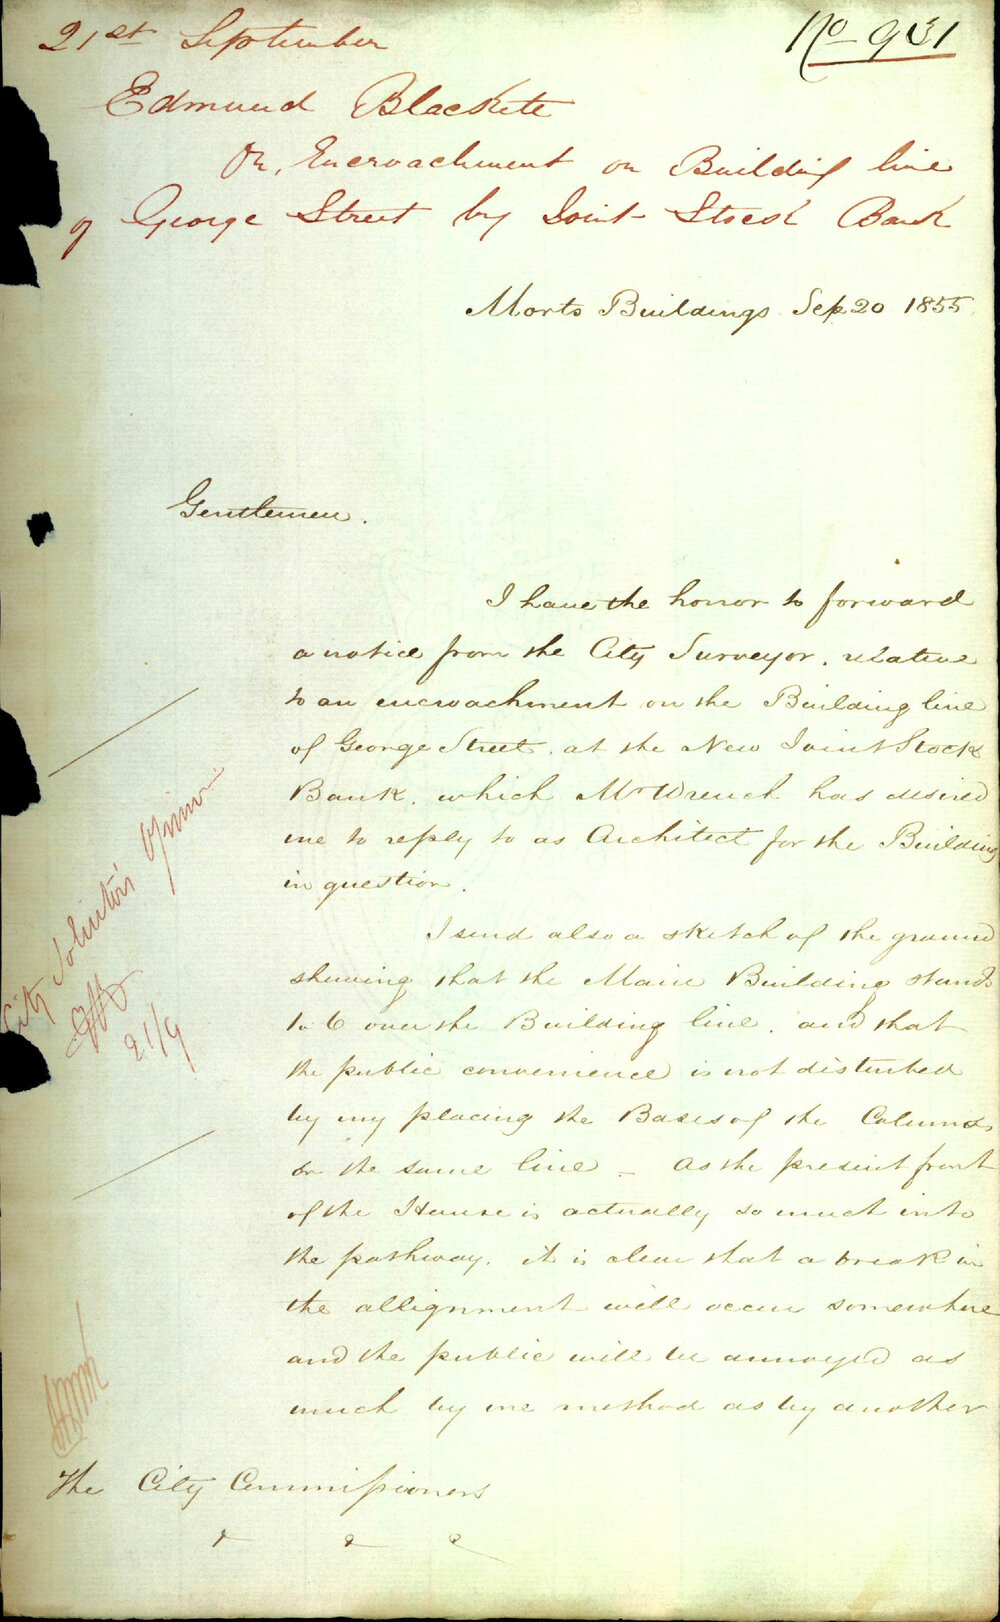 21st September
No 931
Edmund Blackett
On, Encroachment on Building line
of George Street by Joint Stock Bank
Morts Buildings Sep 20 1855
Gentlemen.
I have the honor to forward
a notice from the City Surveyor, relative
to an encroachment on the Building line
of George Street, at the New Joint Stock
Bank, which Mr Wrench has desired
me to reply to as Architect for the Building
in question.
I send also a sketch of the ground
shewing that the Main Building stands
1..6 over the Building line. and that
the public convenience is not disturbed
by my placing the Bases of the Columns
on the same line – As the present front
of the House is actually so much into
the pathway, it is clear that a break in
the allignment will occur somewhere
and the public will be annoyed as
much by one method as by another
City Solicitor's Opinion
21/9
The City Commissioners
& & &